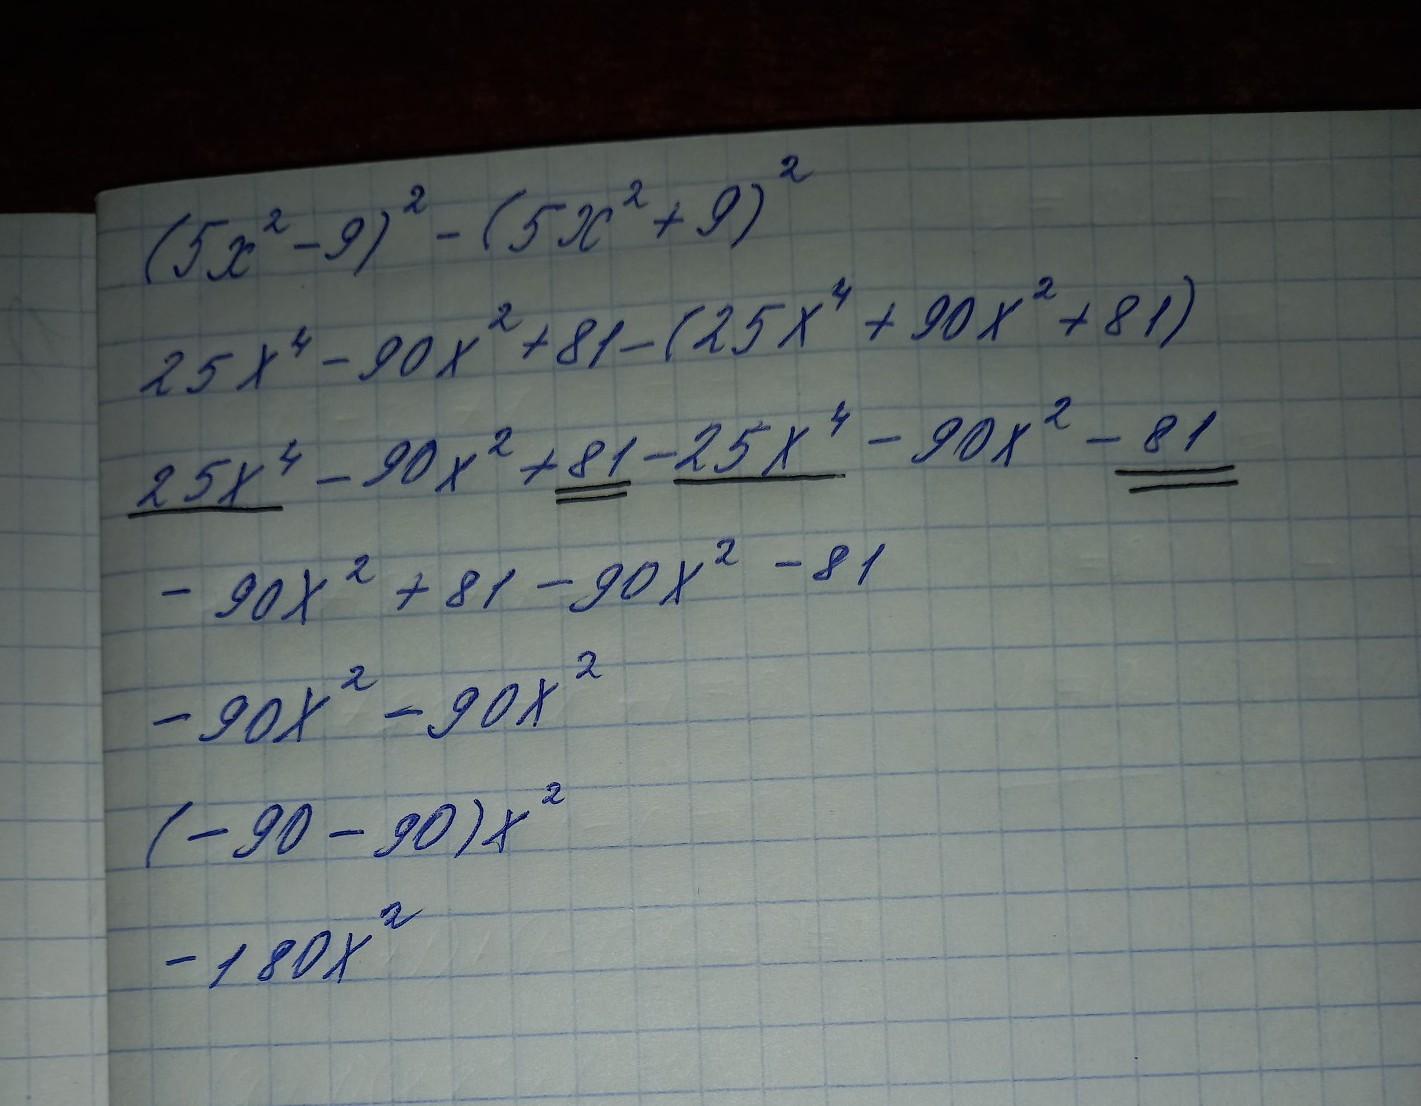 (5x² - 9)² - (5x² + 9)²
25x⁴ - 90x² + 81 - (25x⁴ + 90x² + 81)
25x⁴ - 90x² + 81 - 25x⁴ - 90x² - 81
- 90x² + 81 - 90x² - 81
- 90x² - 90x²
(- 90 - 90)x²
- 180x²